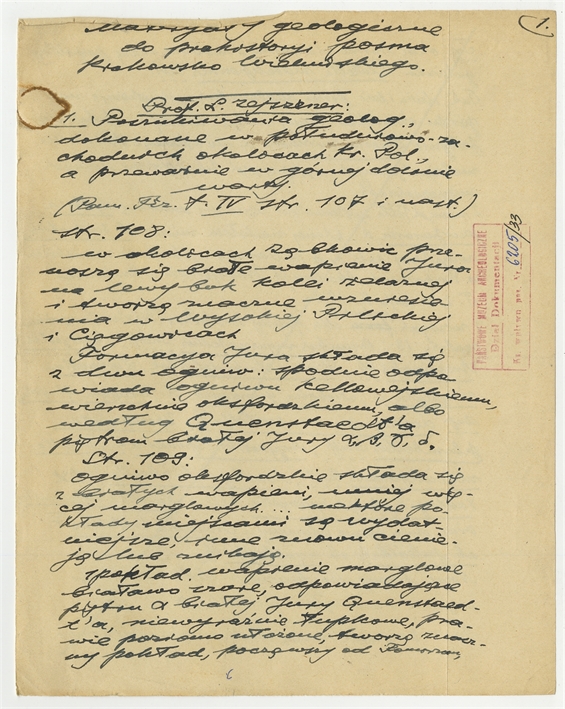 1.
Materjały geologiczne
do prehistoryi pasma
Krakowsko Wieluńskiego.
Prof. L. Zejszner:
1. Poszukiwania geolog.,
dokonane w południowo-za-
chodnich okolicach Kr. Pol.,
a przeważnie w górnej dolinie
warty.
(Pam. Fiz. t. IV str. 107 i nast.)
Str. 108:
w okolicach Ząbkowic prze-
noszą się białe wapienie Jura
na lewy bok kolei żelaznej
i tworzą znaczne wzniesie-
nia w Wysokiej Pileckiej
i Ciągowicach
Formacya Jura składa się
z dwu ogniw: spodnie odpo
wiada ogniwu kellowejskiemu,
wierzchnie oksfordzkiemu, albo
według Quenstaedt'a
piętrom białej Jury α, β, γ, δ.
Str. 109:
ogniwo oksfordzkie składa się
z białych wapieni, mniej wię-
cej marglowych... niektóre po-
kłady miejscami są wydat-
niejsze, inne znowu cienie-
ją lub znikają.
1 pokład. wapienie marglowe
białawo szare, odpowiadające
piętru α białej Jury Quenstaed-
t'a, niewyraźnie łupkowe, pra-
wie poziomo ułożone, tworzą znacz-
ny pokład, począwszy od
6
PAŃSTWOWE MUZEUM ARCHEOLOGICZNE
Dział Dokumentacji
Nr. wpływu pog. Nr 6205/33